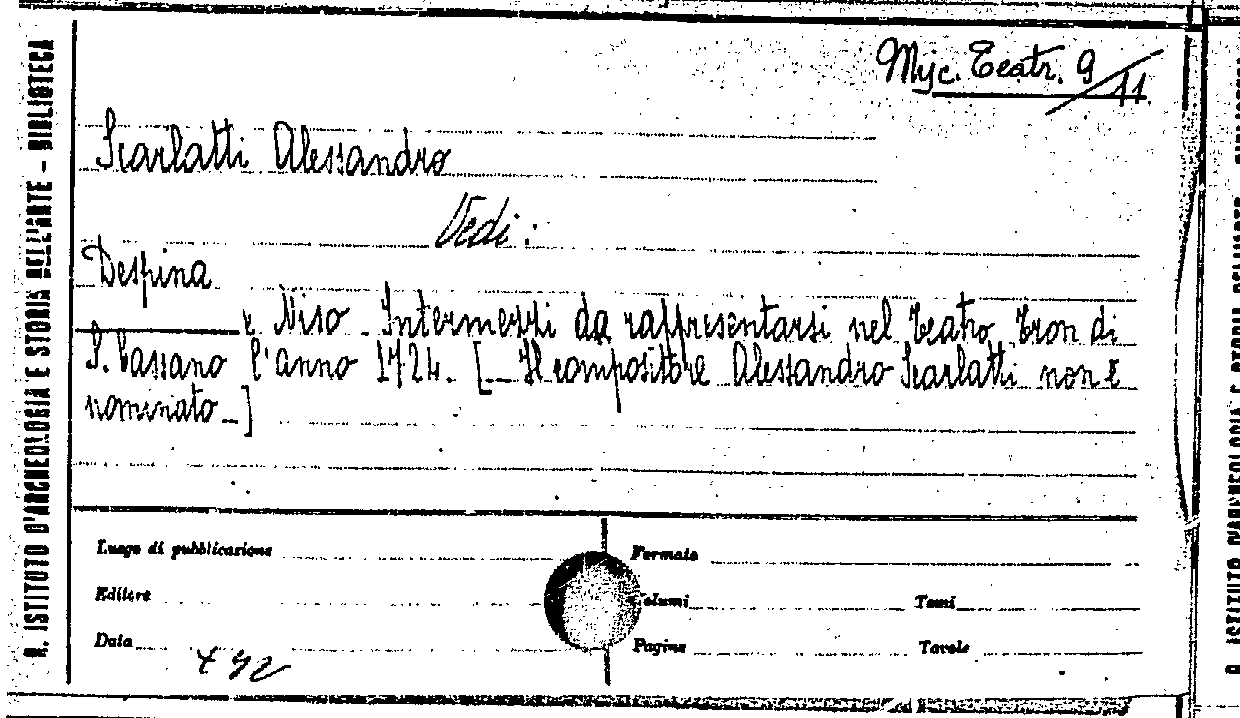 R. ISTITUTO D'ARCHEOLOGIA E STORIA DELL'ARTE - BIBLIOTECA
Misc. Teatr. 9/11
Scarlatti Alessandro
Vedi:
Despina
e Niso. Intermezzi da rappresentarsi nel Teatro Tron di
S. Cassano l'anno 1724. [_ Il compositore Alessandro Scarlatti non è
nominato_]
Luogo di pubblicazione
Formato
Editore
Volumi
Tomi
Data
Pagine
Tavole